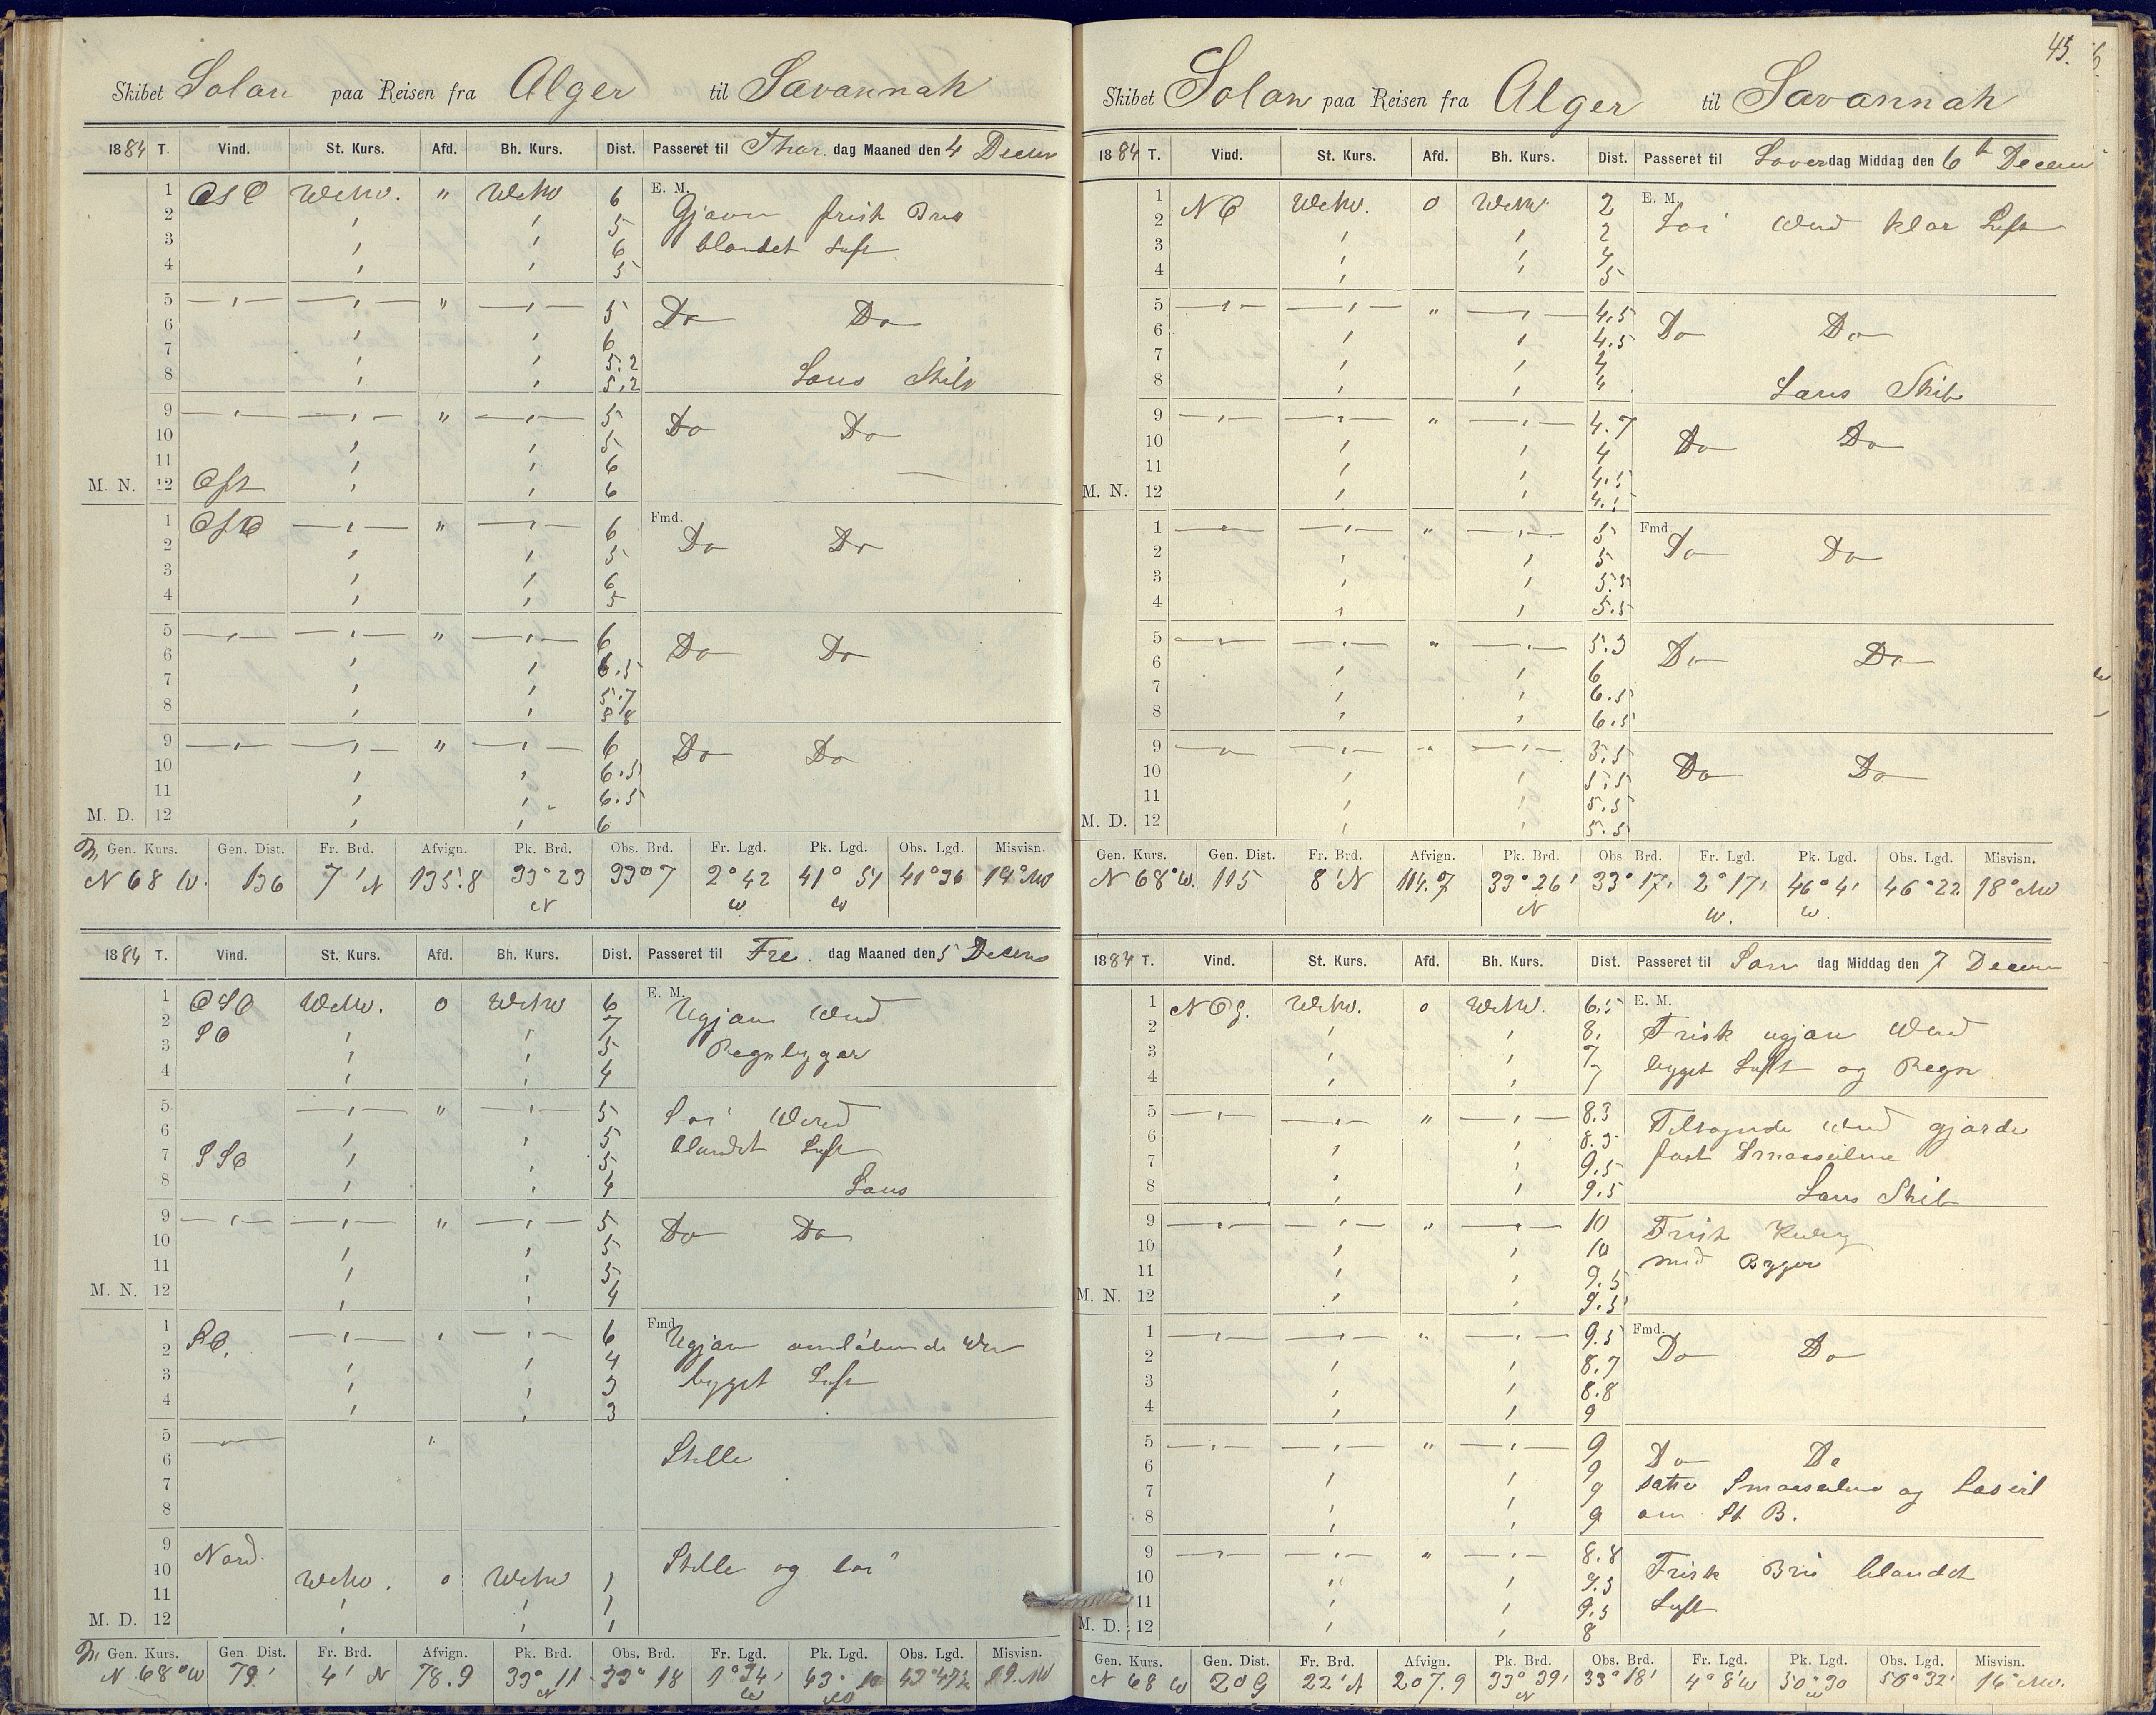 Skibet Solon paa Reisen fra Alger til Savannah
1884 T. Vind. St. Kurs. Afd. Bh. Kurs. Dist. Passeret til Thor. dag Maaned den 4 Decem
E. M.
1 OSO WtNW. " WtNW 6 Gjævn frisk Bris
2 5
3 6 blandet Luft
4 5
5 " 5 Do Do
6 6
7 5.2
8 5.2 Lens Skib
9 " 5 Do Do
10 5
11 6
M. N. 12 Ost 6
Fmd.
1 " 6 Do Do
2 5
3 6
4 5
5 " 6 Do Do
6 6.5
7 5.7
8 5 8
9 " 6 Do Do
10 6.5
11 6.5
M. D. 12 6
Gen. Kurs. Gen. Dist. Fr. Brd. Afvign. Pk. Brd. Obs. Brd. Fr. Lgd. Pk. Lgd. Obs. Lgd. Misvisn.
N 68 W. 136 7' N 135.8 33° 23 N 33° 7 2° 42 W 41° 51 W 41° 36 19° NW
1884 T. Vind. St. Kurs. Afd. Bh. Kurs. Dist. Passeret til Fre. dag Maaned den 5 Decem
E. M.
1 OSO WtNW. 0 WtNW 6 Ugjævn Vind
2 SO 7
3 5 Regnbyger
4 4
5 " 5 Løi Vind
6 5
7 SSO 5 blandet Luft
8 4 Lens
9 " 5 Do Do
10 5
11 5
M. N. 12 4
Fmd.
1 SO. 6 Ugjævn omløbende
2 4
3 3 bygget Luft
4 3
5 Stille
6
7
8
9 Nord. Stille og løi
10 WtNW. 0 WtNW 1
11 1
M. D. 12 1
Gen. Kurs. Gen Dist. Fr. Brd. Afvign. Pk. Brd. Obs. Brd. Fr. Lgd. Pk. Lgd. Obs. Lgd. Misvisn.
N 68° W 79' 4' N 78.9 33° 11 N 33° 18 1° 34' W 43° 10 19. NW
45.
Skibet Solon paa Reisen fra Alger til Savannah
1884 T. Vind. St. Kurs. Afd. Bh. Kurs. Dist. Passeret til Løverdag Middag den 6 Decem
E. M.
1 NO WtNW. 0 WtNW. 2 Løi Vind klar Luft
2 2
3 4
4 5
5 " 4.5 Do Do
6 4.5
7 4
8 4 Lens Skib
9 " 4.7 Do Do
10 4
11 4.5
M. N. 12
Fmd
1 " 5 Do Do
2 5
3 5.5
4 5.5
5 " 5.3 Do Do
6 6
7 6.5
8 6.5
9 5.5 Do Do
10 5.5
11 5.5
M. D. 12 5.5
Gen. Kurs. Gen. Dist. Fr. Brd. Afvign. Pk. Brd. Obs. Brd. Fr. Lgd. Pk. Lgd. Obs. Lgd. Misvisn.
N 68° W. 115 8' N 114.7 33° 26' N 33° 17' 2° 17' W. 46° 4' W. 46° 22 18° NW
1884 T. Vind. St. Kurs. Afd. Bh. Kurs. Dist. Passeret til Søn dag Middag den 7 Decem
E. M.
1 NO WtNW. 0 WtNW. 6.5 Frisk ugjævn Vind
2 8.
3 7 bygget Luft og Regn
4 7
5 " 8.3 Tiltagende Vind gjorde
6 8.5
7 9.5 fast Smaaseilene
8 9.5 Lens Skib
9 " 10 Frisk Kuling
10 10
11 9.5 med Byger
M. N. 12 9.5
Fmd.
1 " 9.5 Do Do
2 8.7
3 8.8
4 9
5 " 9 Do Do
6 9
7 9 satte Smaaseilene og Læseil
8 9 om St B.
9 " 8.8 Frisk Bris blandet
10 9.5
11 9.5 Luft
M. D. 12 8
Gen. Kurs. Gen. Dist. Fr. Brd. Afvign. Pk. Brd. Obs. Brd. Fr. Lgd. Pk. Lgd. Obs. Lgd. Misvisn.
N 68 W 209 22' N 207.9 33° 39' N 33° 18' 4° 8' W 50° 30 W 50° 32' 16° NW.